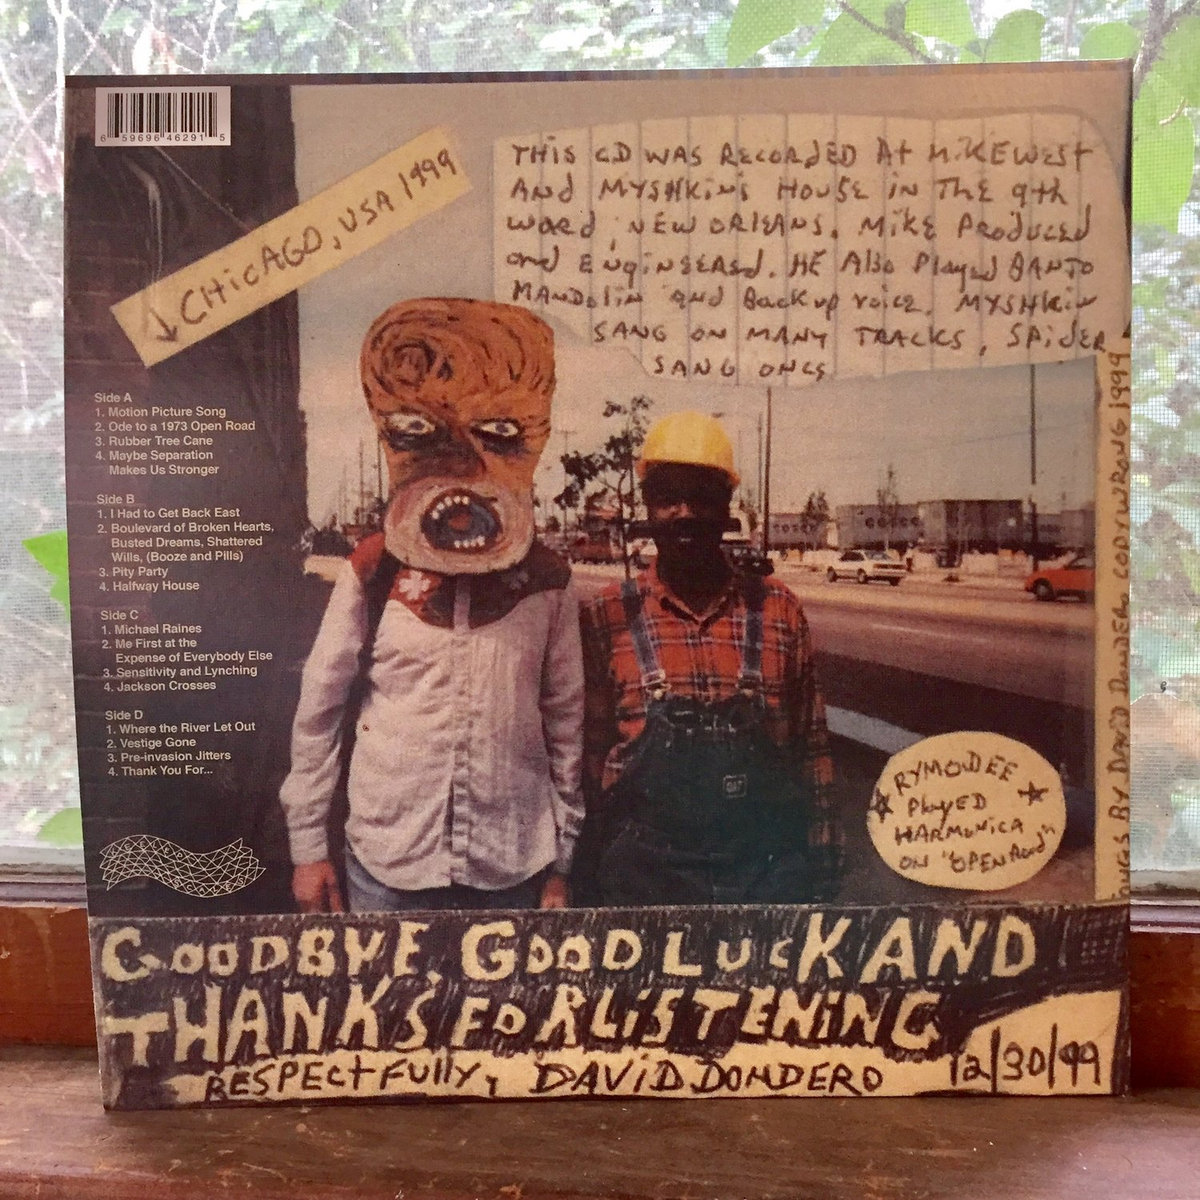 6 59696 46291 5
CHICAGO, USA 1999
THIS CD WAS RECORDED AT MIKE WEST
AND MYSHKIN'S HOUSE IN THE 9th
WARD, NEW ORLEANS. MIKE PRODUCED
and ENGINEERED. HE Also Played BANJO
MANDOLIN and Backup voice. MYSHKIN
SANG ON MANY TRACKS, SPIDER
SANG ONCE
Side A
1. Motion Picture Song
2. Ode to a 1973 Open Road
3. Rubber Tree Cane
4. Maybe Separation
Makes Us Stronger
Side B
1. I Had to Get Back East
2. Boulevard of Broken Hearts,
Busted Dreams, Shattered
Wills, (Booze and Pills)
3. Pity Party
4. Halfway House
Side C
1. Michael Raines
2. Me First at the
Expense of Everybody Else
3. Sensitivity and Lynching
4. Jackson Crosses
Side D
1. Where the River Let Out
2. Vestige Gone
3. Pre-invasion Jitters
4. Thank You For...
CAT
RYMODEE
PlAyED
HARMONICA
ON "OPEN Road"
SONGS BY DAVID DONDERO COPYWRONG 1999
GOODBYE, GOOD LUCK AND
THANKS FOR LiSTENiNG
RESPECTFUlly, DAViD DONDERO
12/30/99